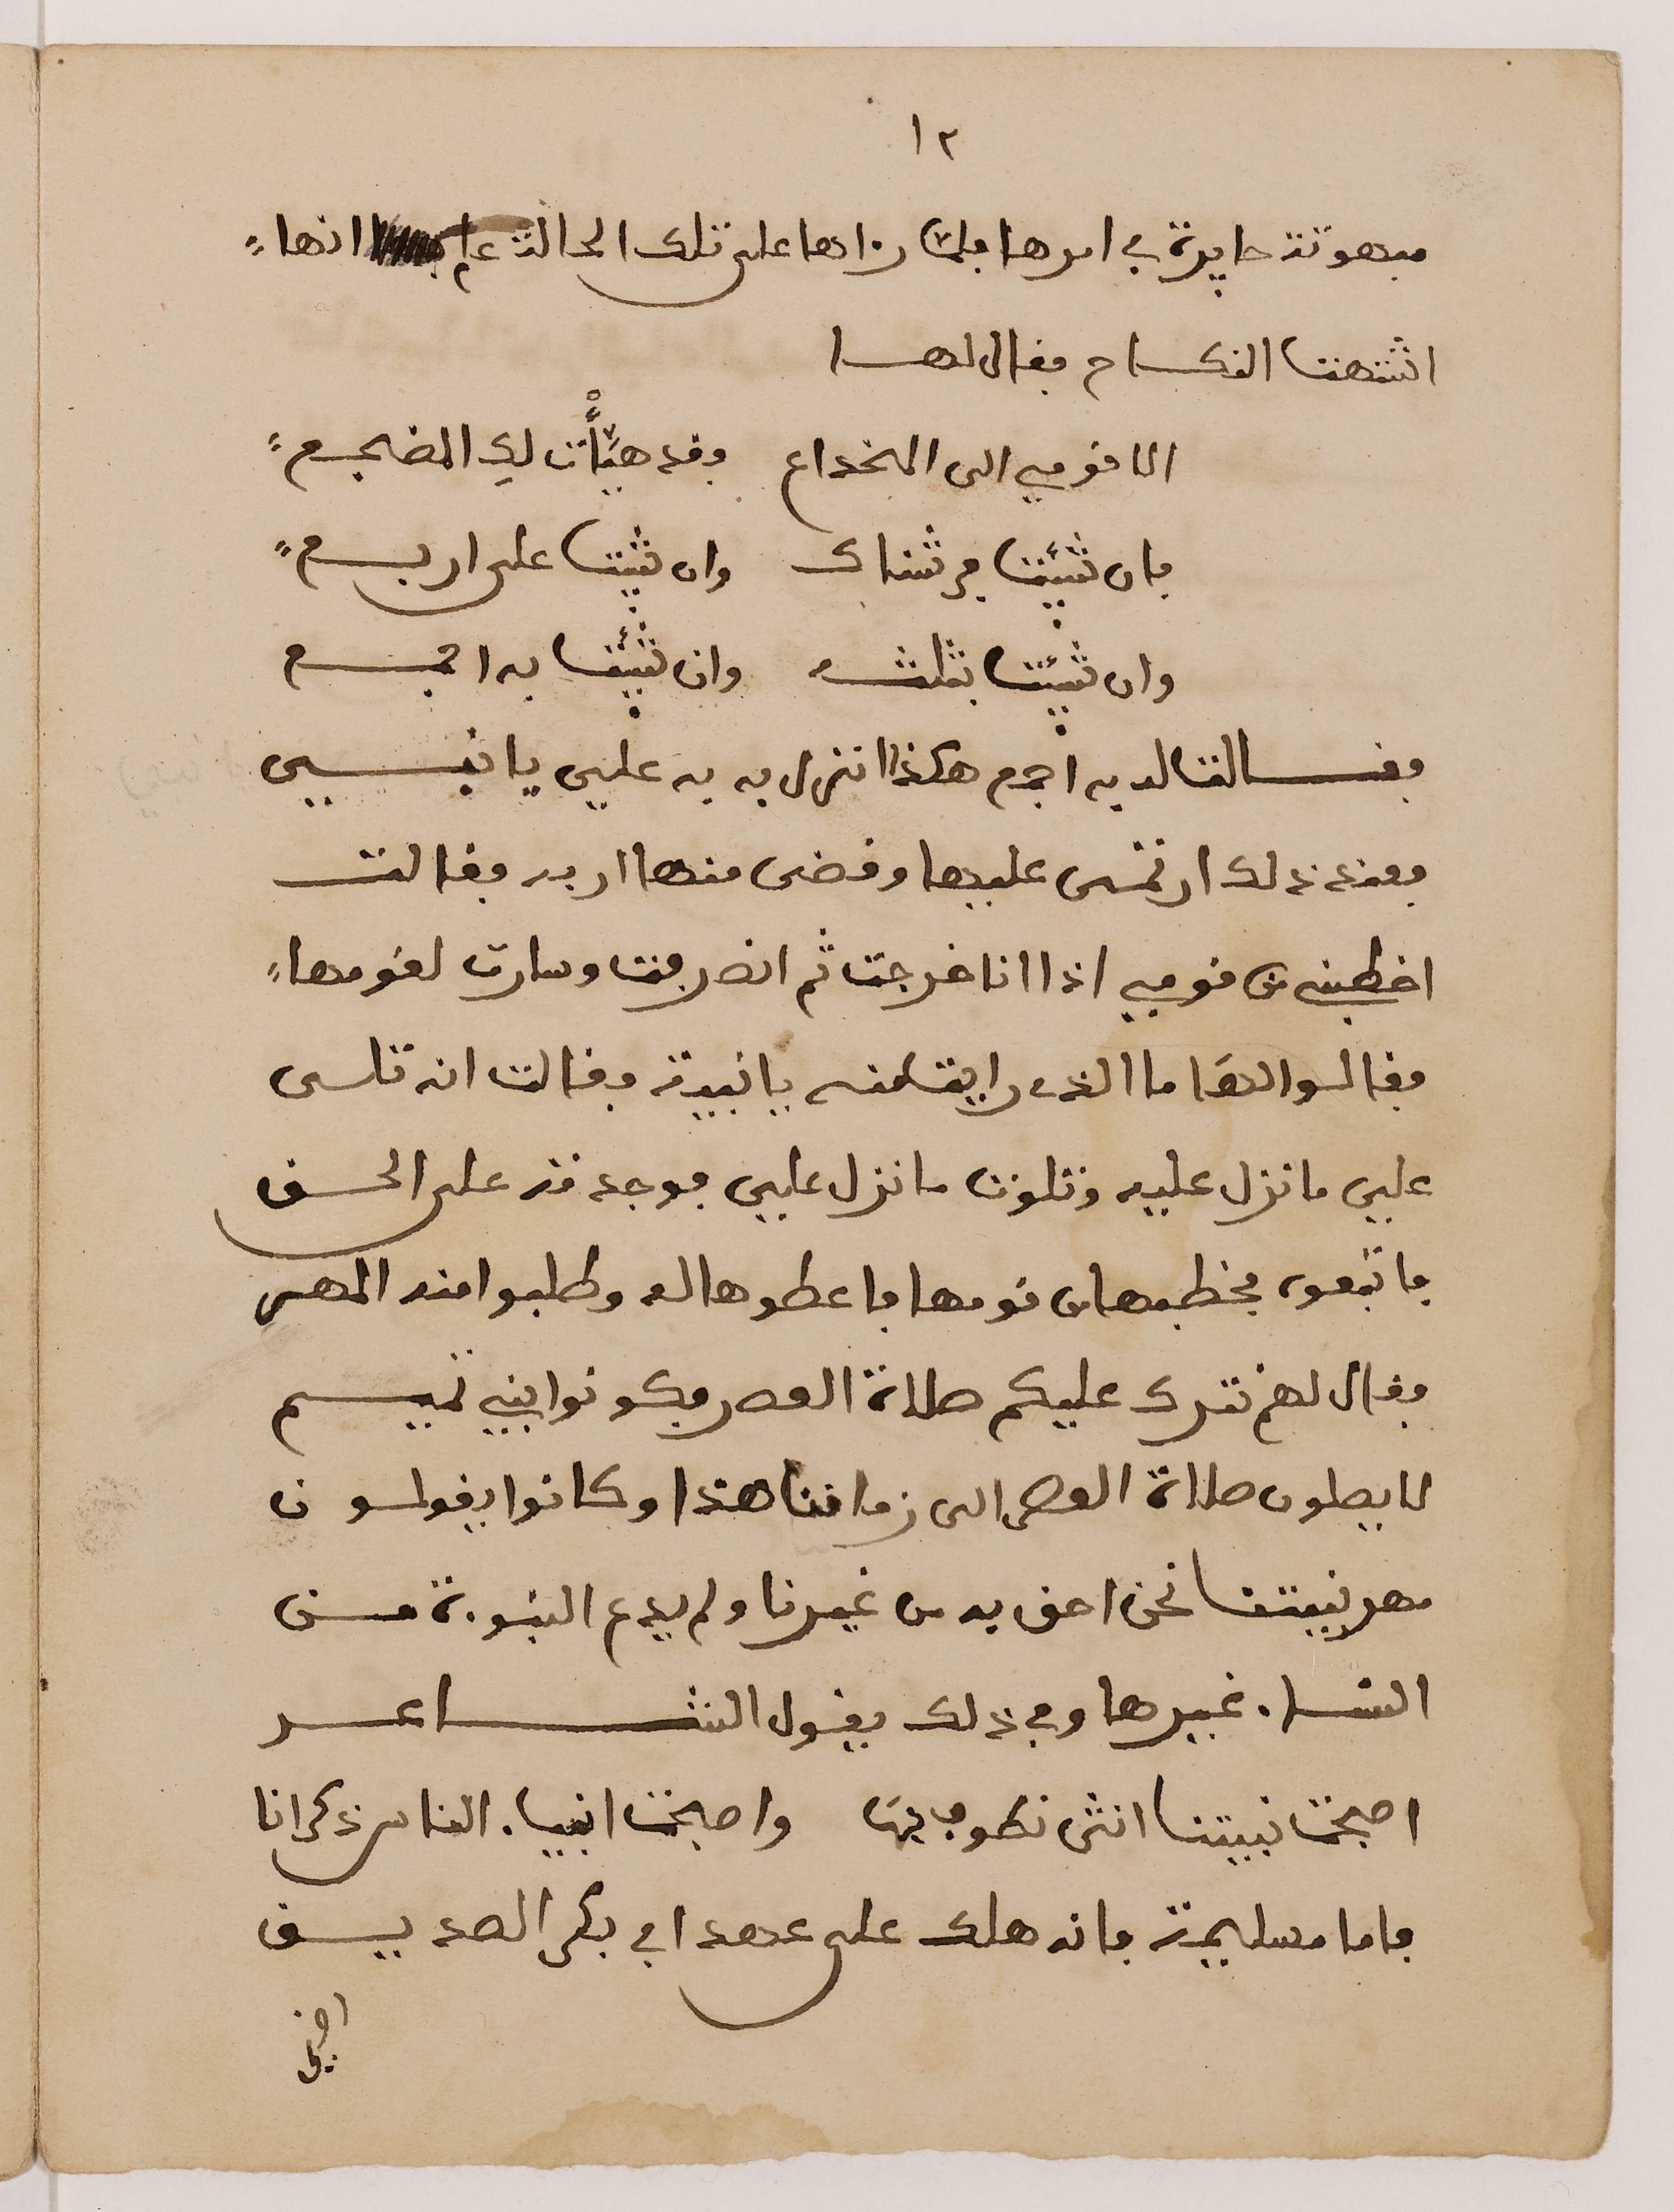 ١٢
مبهوتة حايرة في امرها فلما راءها على تلك الحالة علم انها
اشتهت النكاح فقال لها
الا قومي الى المخداع وقد هيّأت لكِ المضجع
فان شئت فرشناك وان شئت على اربع
وان شئت بثلثه وان شئت به اجمع
فقالت له به اجمع هكذا انزل به به علي يا نبي
فعند ذلك ارتمى عليها وقضى منها اربه فقالت
اخطبني من قومي اذا انا خرجت ثم انصرفت وسارت لقومها
فقالوا لها ما الذي رايت منه يا نبية فقالت انه تلى
علي ما نزل عليه وتلوت ما نزل علي فوجدته على الحق
فاتبعوه فخطبها من قومها فاعطوها له وطلبوا منه المهر
فقال لهم نترك عليكم صلاة العصر فكونوا بني تميم
لا يصلون صلاة العصر الى زماننا هذا وكانوا يقولون
مهر نبيتنا نحن احق به من غيرنا ولم يدع النبوءة من
النساء غيرها وفي ذلك يقول الشاعر
اصبحت نبيتنا انثى نطوف بها واصبحت انبياء الناس ذكرانا
فاما مسليمة فانه هلك على عهد ابي بكر الصديق